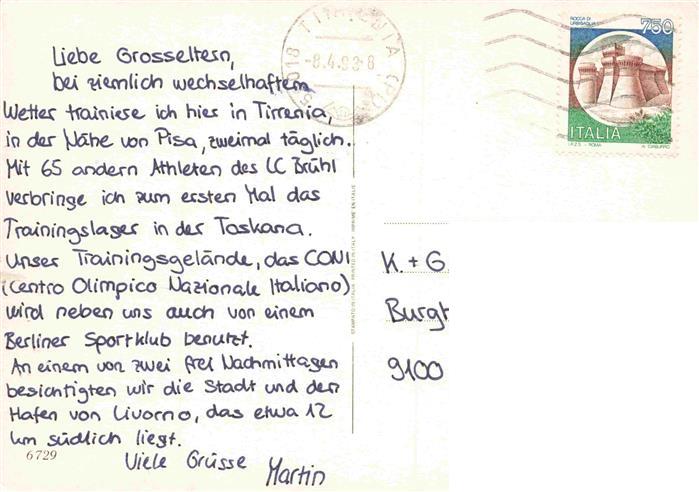 Liebe Grosseltern,
bei ziemlich wechselhaftem
Wetter trainiere ich hier in Tirrenia,
in der Nähe von Pisa, zweimal täglich.
Mit 65 andern Athleten des LC Brühl
verbringe ich zum ersten Mal das
Trainingslager in der Toskana.
Unser Trainingsgelände, das CONI
(Centro Olimpico Nazionale Italiano)
wird neben uns auch von einem
Berliner Sportklub benutzt.
An einem von zwei frei Nachmittagen
besichtigten wir die Stadt und den
Hafen von Livorno, das etwa 12
km südlich liegt.
Viele Grüsse Martin
6729
STAMPATO IN ITALIA PRINTED IN ITALY IMPRIMÉ EN ITALIE
TIRRENIA (PI)
ROCCA DI
URBISAGLIA
750
ITALIA
I.P.Z.S. - ROMA
K. + G.
Burgt
9100